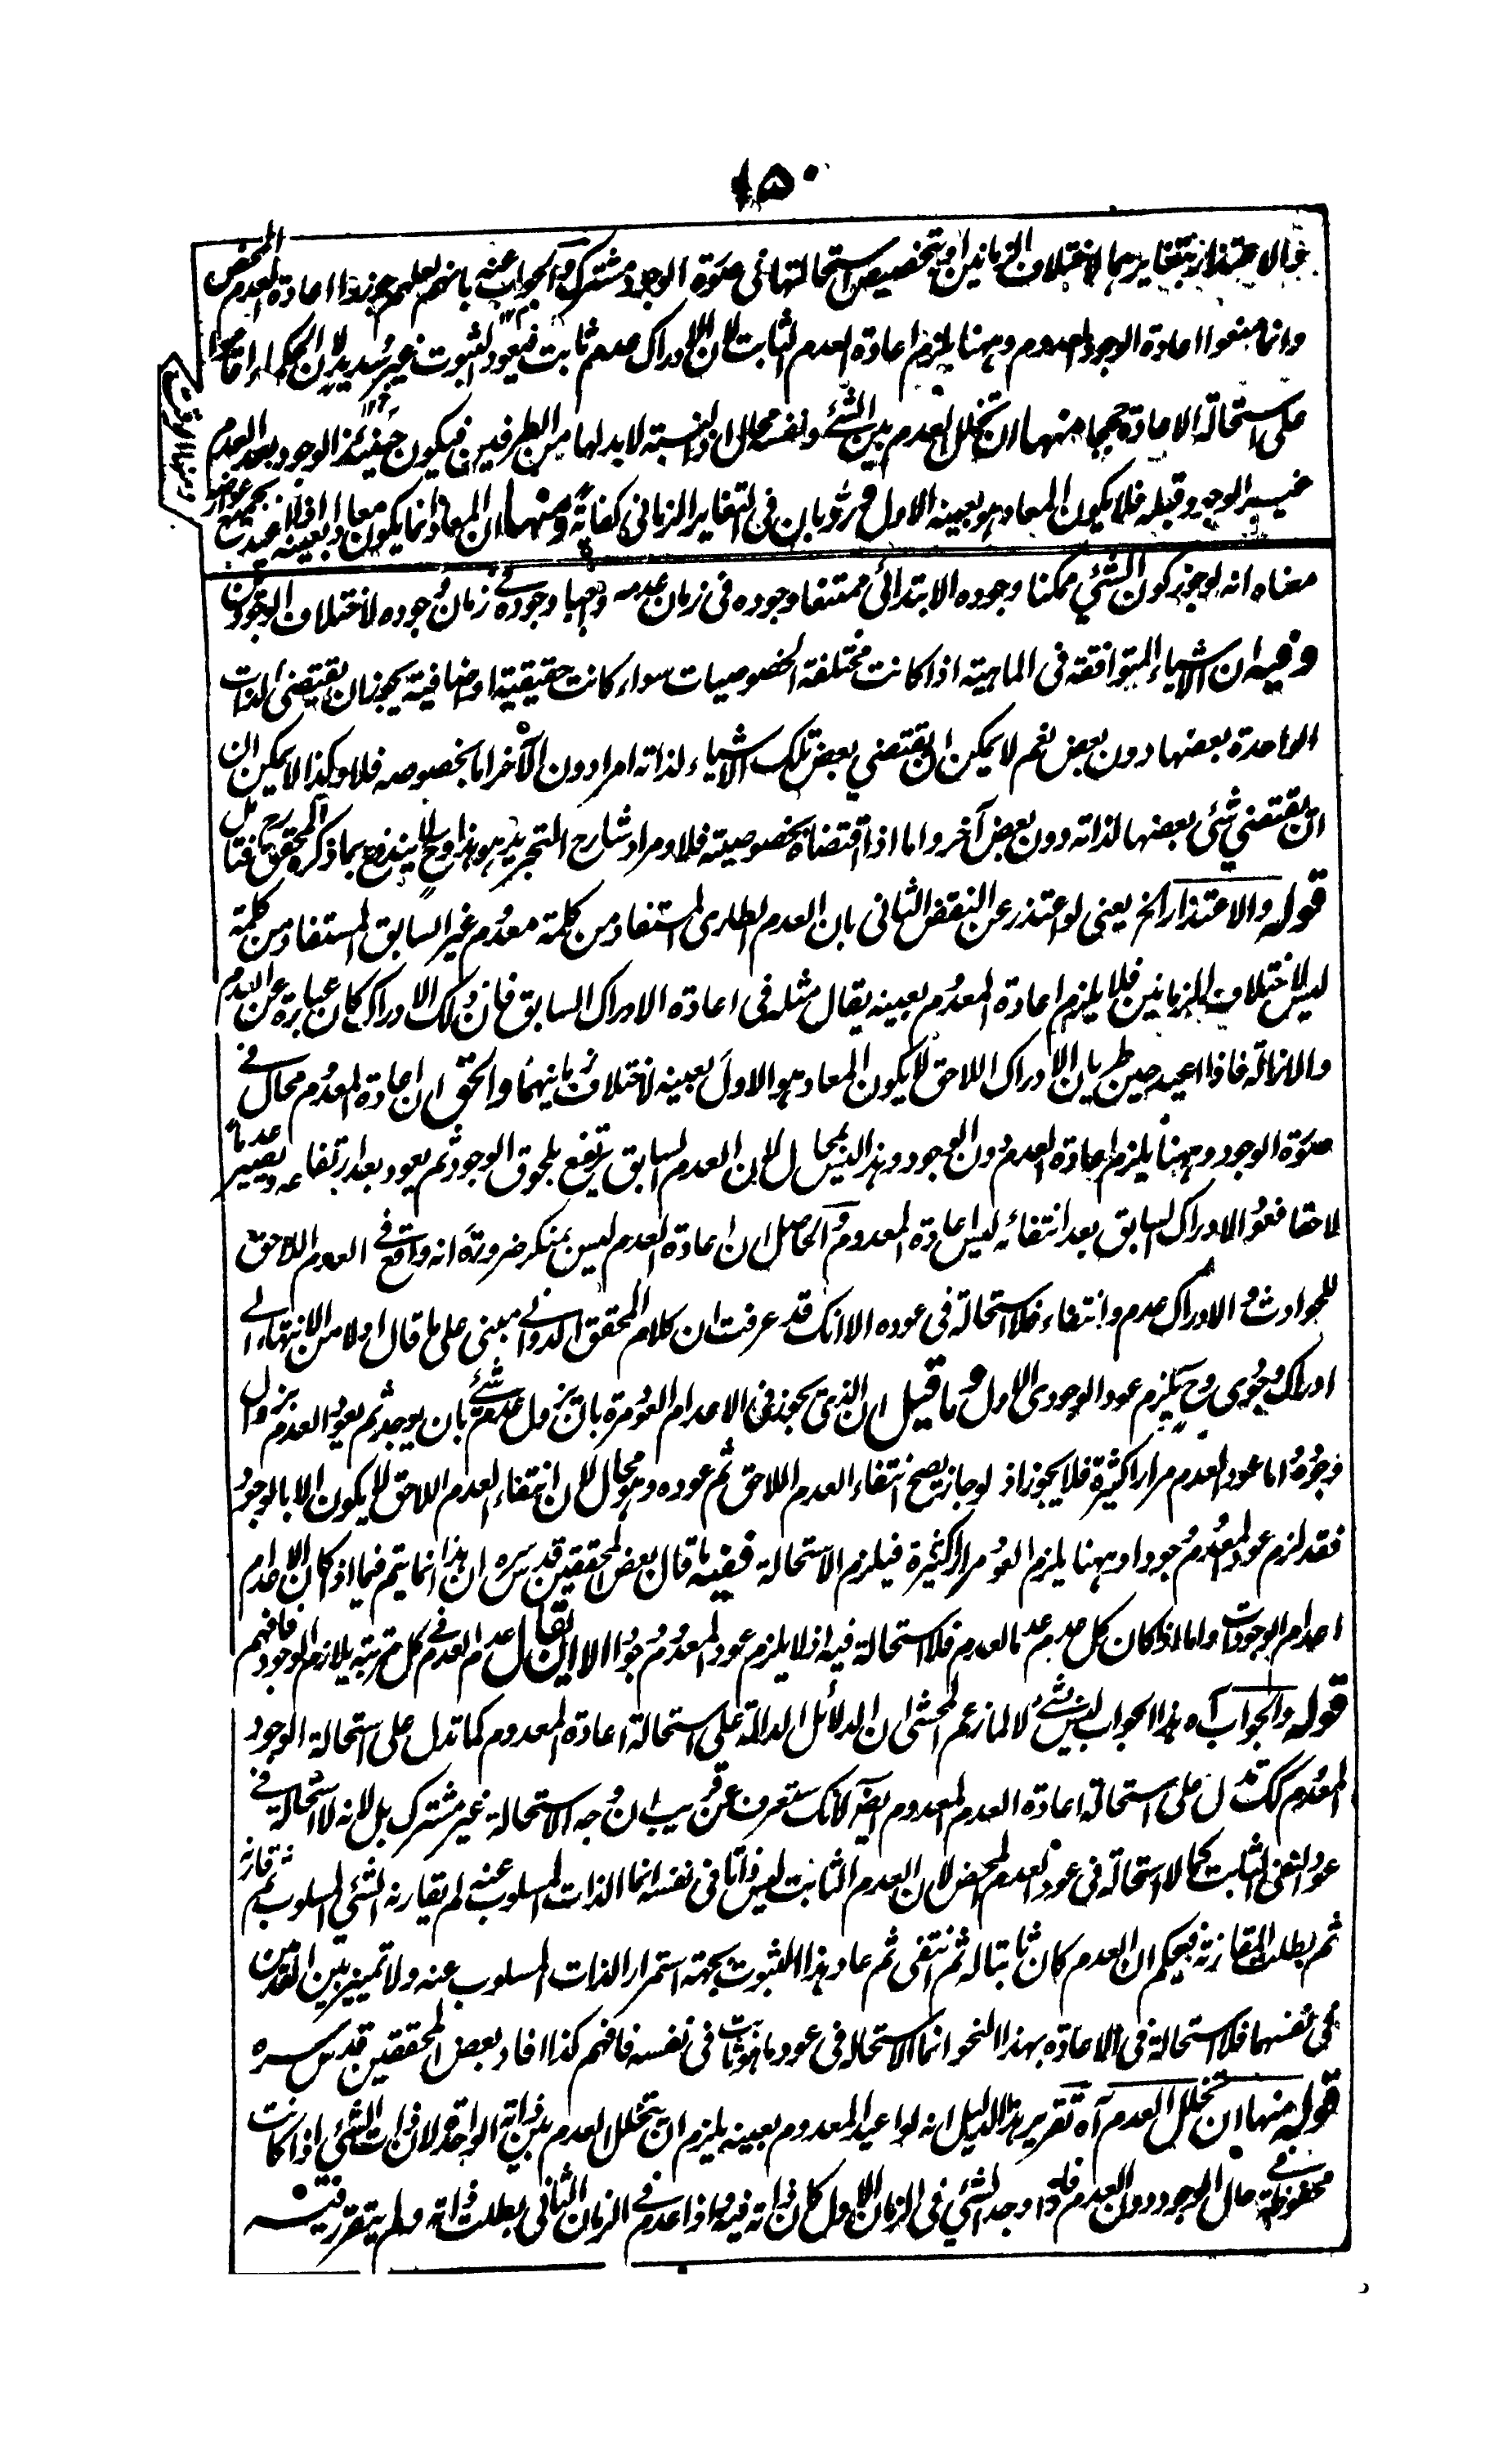 ١٥٠
والاعتذار بتغايرهما لاختلاف الزمانين او بتخصيص استحالتها فى صورة الوجود مشترك والجواب عنه بانهم لعلهم جوزوا اعادة العدم المحض
وانما منعوا اعادة الوجود المعدوم وههنا يلزم اعادة العدم الثابت لان الادراك عدم ثابت فيعود الثبوت غير سديد لان الحكماء اقاموا
على استحالة الاعادة حججا منها ان تخلل العدم بين الشئ ونفسه محال اذ النسبة لا بد لها من الطرفين فيكون حينئذ الوجود بعد العدم
غير الوجود قبله فلا يكون المعاد هو بعينه الاول ورد بان فى التغاير الزمانى كفاية ومنها ان المعاد انما يكون معادا بعينه اذا اعيد بجميع عوارضه
ومنها الوقت
معناه انه لو جوز كون الشئ ممكنا وجوده الابتدائى ممتنعا وجوده فى زمان عدمه وواجبا وجوده فى زمان وجوده لاختلاف الوجودين
وفيه ان الاشياء المتوافقة فى الماهية اذا كانت مختلفة الخصوصيات سواء كانت حقيقية او اضافية يجوز ان يقتضى الذات
الواحدة بعضها دون بعض نعم لا يمكن ان يقتضي بعض تلك الاشياء لذاته امرا دون الآخر اما بخصوصه فلا وكذا لا يمكن ان
ان يقتضي شئ بعضها لذاته دون بعض آخر واما اذا اقتضاه بخصوصيته فلا ومراد شارح التجريد هو هذا وح لا يندفع بما ذكره المحقق فتامل
قوله والاعتذار الخ يعنى لو اعتذر عن النقض الثانى بان العدم الطارى المستفاد من كلمة معدوم غير السابق المستفاد من كلمة
ليس لاختلاف الزمانين فلا يلزم اعادة المعدوم بعينه يقال مثله فى اعادة الادراك السابق فان ذلك الادراك كان عبارة عن العدم
والازالة فاذا اعيد حين طريان الادراك اللاحق لا يكون المعاد هو الاول بعينه لاختلاف زمانيهما والحق ان اعادة المعدوم محال فى
صورة الوجود وههنا يلزم اعادة العدم دون الوجود وهذا ليس بمحال لان العدم السابق يرتفع بلحوق الوجود ثم يعود بعد ارتفاعه ويصير عدما
لاحقا فعود الادراك السابق بعد انتفائه ليس اعادة المعدوم والحاصل ان اعادة العدم ليس بمنكر ضرورة انه واقع فى العدم اللاحق
للحوادث والادراك عدم وانتفاء فلا استحالة فى عوده الا انك قد عرفت ان كلام المحقق الدوانى مبنى على ما قال اولا من الانتهاء الى
ادراك وجودى وح يلزم عود الوجودى الاول وما قيل ان الذى يجوز فى الاعدام العود مرة بان يزول عدم شئ مرة بان يوجد ثم يعود العدم بزوال
وجوده اما عود العدم مرارا كثيرة فلا يجوز اذ لو جاز يصح انتفاء العدم اللاحق ثم عوده وهو محال لان انتفاء العدم اللاحق لا يكون الا بالوجود
فقد لزم عود المعدوم موجودا وههنا يلزم العود مرارا كثيرة فيلزم الاستحالة ففيه ما قال بعض المحققين قدس سره ان هذا انما يتم فيما اذا كان الاعدام
اعدام الوجودات واما اذا كان كل عدم عدما لعدم فلا استحالة فيه اذ لا يلزم عود المعدوم موجودا الا ان يقال عدم العدم فى كل مرتبة يلازم الوجود فافهم
قوله والجواب آه هذا الجواب ليس بشئ لا لما زعم المحشى ان الدلائل الدالة على استحالة اعادة المعدوم كما تدل على استحالة الوجود
المعدوم كك تدل على استحالة اعادة العدم المعدوم ايضا لانك ستعرف عن قريب ان وجه الاستحالة غير مشترك بل لانه لا استحالة فى
عود النفى الثابت كما لا استحالة فى عود العدم المحض لان العدم الثابت ليس ذاتا فى نفسه انما الذات المسلوب عنه لم يقارنه الشئ المسلوب ثم قارنه
ثم بطلت المقارنة فيحكم ان العدم كان ثابتا له ثم انتفى ثم عاد وهذا الثبوت بجهة استمرار الذات المسلوب عنه ولا تميز بين العدمين
فى نفسهما فلا استحالة فى الاعادة بهذا النحو انما الاستحالة فى عود ما هو ثابت فى نفسه فافهم كذا افاد بعض المحققين قدس سره
قوله منها ان تخلل العدم آه تقرير هذا الدليل انه لو اعيد المعدوم بعينه يلزم ان يتخلل العدم بين ذاته الواحدة لان ذات الشئ اذا كانت
محفوظة فى حال الوجود دون العدم فاذا وجد الشئ فى الزمان الاول كان ذاته فيه واذا عدم فى الزمان الثانى بطلت ذاته ولم يتقرر فيه